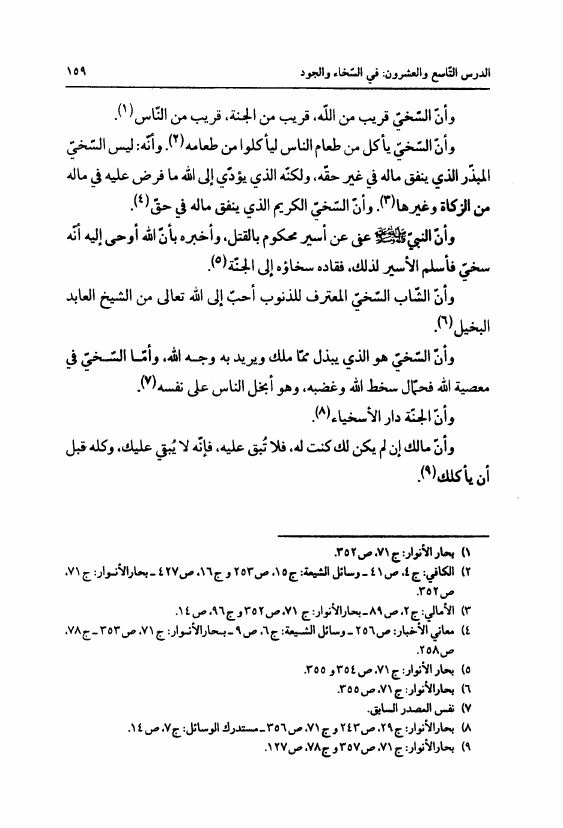 الدرس التّاسع والعشرون: في السّخاء والجود ١٥٩
وأنّ السّخيّ قريب من اللّه، قريب من الجنة، قريب من النّاس(١).
وأنّ السّخيّ يأكل من طعام الناس ليأكلوا من طعامه(٢). وأنّه: ليس السّخيّ
المبذّر الذي ينفق ماله في غير حقّه، ولكنّه الذي يؤدّي إلى الله ما فرض عليه في ماله
من الزكاة وغيرها(٣). وأنّ السّخيّ الكريم الذي ينفق ماله في حقّ(٤).
وأنّ النبيّ ﷺ عفى عن أسير محكوم بالقتل، وأخبره بأنّ الله أوحى إليه أنّه
سخيّ فأسلم الأسير لذلك، فقاده سخاؤه إلى الجنّة(٥).
وأنّ الشّاب السّخيّ المعترف للذنوب أحبّ إلى الله تعالى من الشيخ العابد
البخيل(٦).
وأنّ السّخيّ هو الذي يبذل ممّا ملك ويريد به وجه الله، وأمّا السّخيّ في
معصية الله فحمّال سخط الله وغضبه، وهو أبخل الناس على نفسه(٧).
وأنّ الجنّة دار الأسخياء(٨).
وأنّ مالك إن لم يكن لك كنت له، فلا تُبق عليه، فإنّه لا يُبقي عليك، وكله قبل
أن يأكلك(٩).
١) بحار الأنوار: ج٧١، ص٣٥٢.
٢) الكافي: ج٤، ص٤١ ـ وسائل الشيعة: ج١٥، ص٢٥٣ و ج١٦، ص٤٢٧ ـ بحارالأنوار: ج٧١،
ص٣٥٢.
٣) الأمالي: ج٢، ص٨٩ ـ بحارالأنوار: ج٧١، ص٣٥٢ و ج٩٦، ص١٤.
٤) معاني الأخبار: ص٢٥٦ ـ وسائل الشيعة: ج٦، ص٩ ـ بحارالأنوار: ج٧١، ص٣٥٣ ـ ج٧٨،
ص٢٥٨.
٥) بحار الأنوار: ج٧١، ص٣٥٤ و ٣٥٥.
٦) بحارالأنوار: ج٧١، ص٣٥٥.
٧) نفس المصدر السابق.
٨) بحارالأنوار: ج٢٩، ص٢٤٣ و ج٧١، ص٣٥٦ ـ مستدرك الوسائل: ج٧، ص١٤.
٩) بحارالأنوار: ج٧١، ص٣٥٧ و ج٧٨، ص١٢٧.